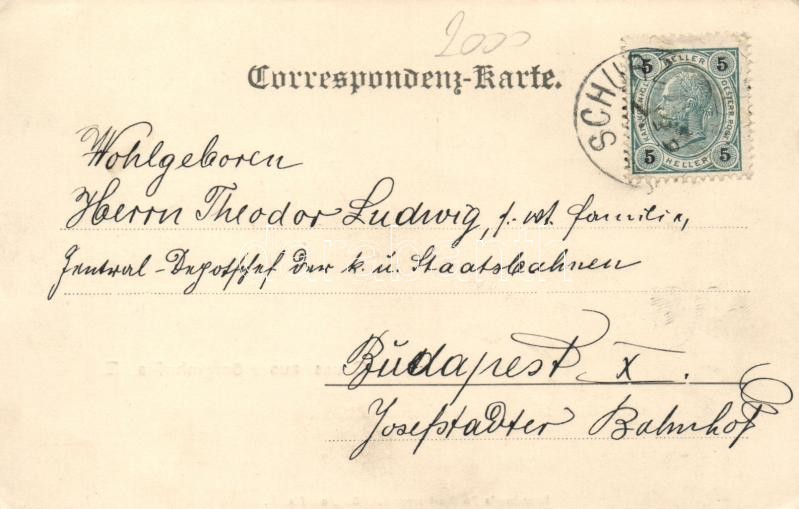 2000
Correspondenz-Karte.
SCHÜ
5 HELLER 5
5 HELLER 5
Wohlgeboren
Herrn Theodor Ludwig, s. wt. Familie,
Zentral-Depotschef der k. u. Staatsbahnen
Budapest X.
Josefstadter Bahnhof